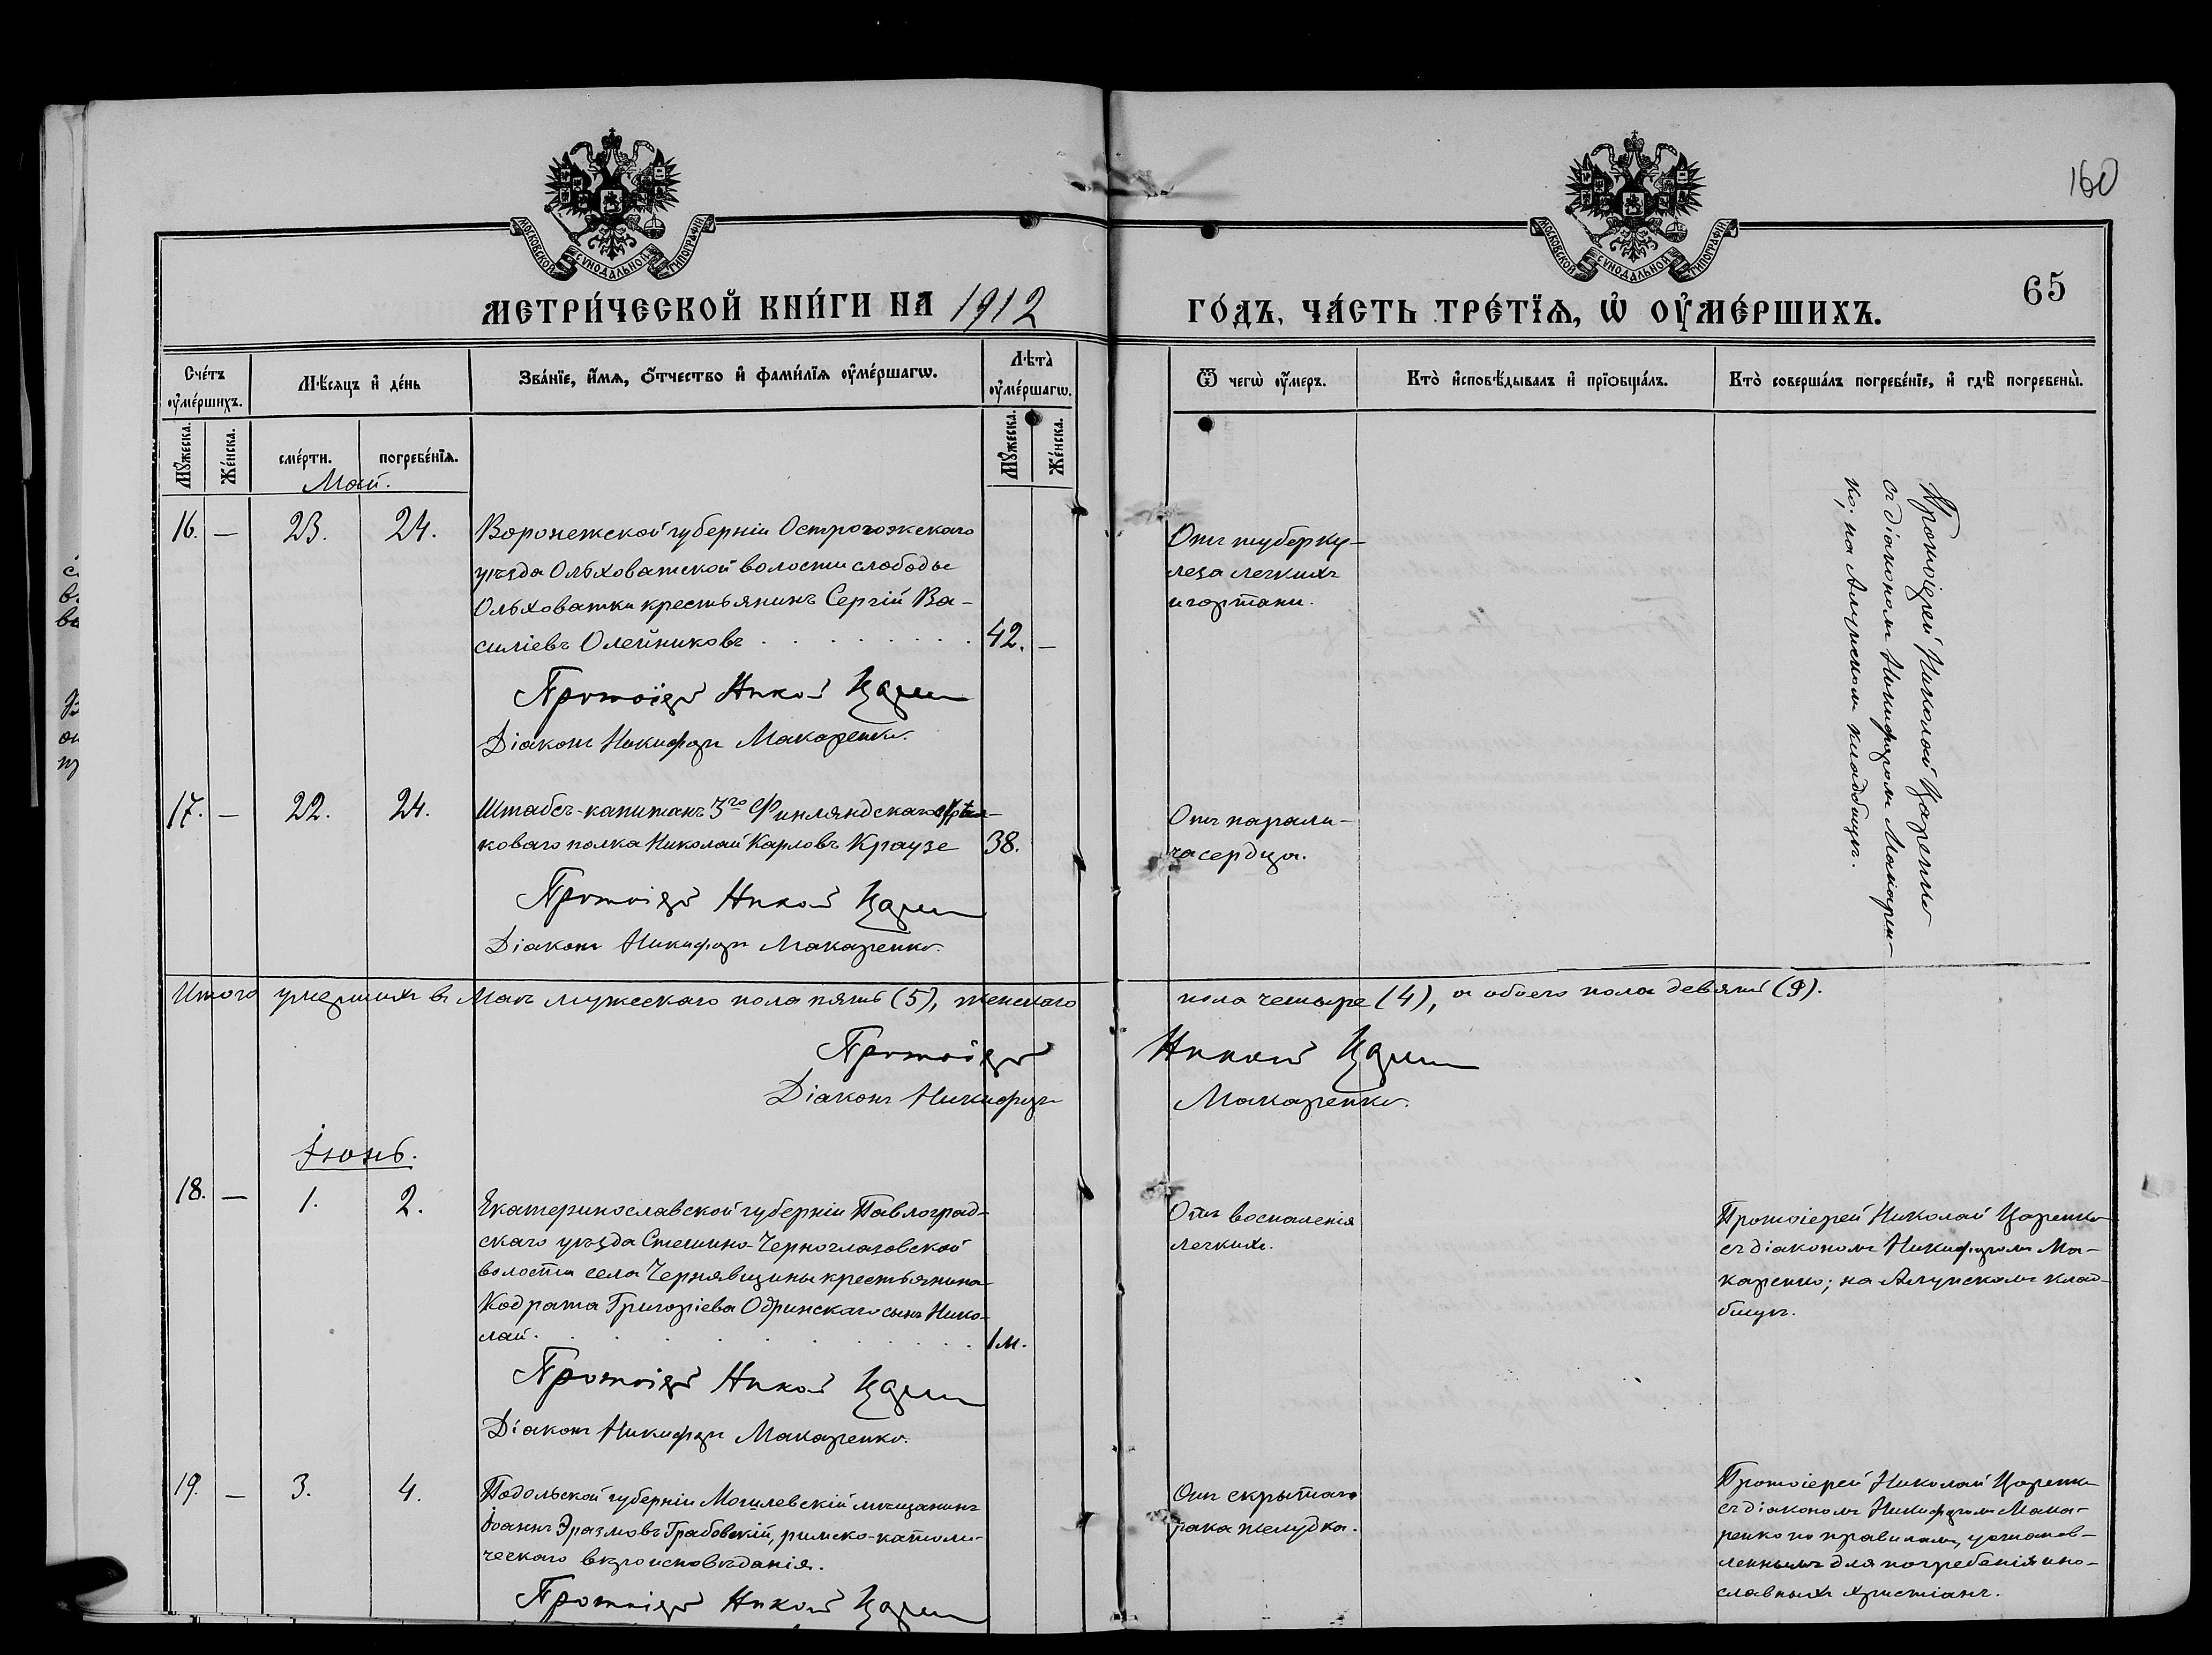 160
МОСКОВСКОЙ СѴНОДАЛЬНОЙ ТИПОГРАФІИ
МОСКОВСКОЙ СѴНОДАЛЬНОЙ ТИПОГРАФІИ
65
МЕТРИ́ЧЕСКОЙ КНИ́ГИ НА 1912 ГО́ДЪ, ЧА́СТЬ ТРЕ́ТЇѦ, Ѡ҆ ОУ҆МЕ́РШИХЪ.
Сче́тъ оу҆ме́ршихъ.
Мꙋ́жеска.
Же́нска.
Мѣ́сѧцъ и҆ де́нь
сме́рти.
погребе́нїѧ.
Зва́нїе, и҆́мѧ, ѻ҆́тчество и҆ фами́лїѧ оу҆ме́ршагѡ.
Лѣта̀ оу҆ме́ршагѡ.
Мꙋ́жеска.
Же́нска.
Ѿ чегѡ̀ оу҆́меръ.
Кто̀ и҆сповѣ́дывалъ и҆ прїѡбща́лъ.
Кто̀ соверша́лъ погребе́нїе, и҆ гдѣ̀ погребены̀.
Май.
16. — 23. 24.
Воронежской губерніи Острогожскаго
уѣзда Ольховатской волости слободы
Ольховатки крестьянинъ Сергій Ва-
силіевъ Олейниковъ . . . . . . . . 42. —
Протоіерей Николай Царенко
Діаконъ Никифоръ Макаренко.
Отъ туберку-
леза легкихъ
и гортани.
Протоіерей Николай Царенко
съ діакономъ Никифоромъ Макарен-
ко; на Алупскомъ кладбищѣ.
17. — 22. 24.
Штабсъ-капитанъ 3го Финляндскаго стрѣл-
коваго полка Николай Карловъ Краузе 38.
Протоіерей Николай Царенко
Діаконъ Никифоръ Макаренко.
Отъ парали-
ча сердца.
Итого умершихъ въ Маѣ мужескаго пола пять (5), женскаго пола четыре (4), а обоего пола девять (9).
Протоіерей Николай Царенко
Діаконъ Никифоръ Макаренко.
Іюнь.
18. — 1. 2.
Екатеринославской губерніи Павлоград-
скаго уѣзда Черноглазовской
волости села Чернявщины крестьянина
Кодрата Григоріева Одринскаго сынъ Нико-
лай. . . . . . . . . 1 м.
Протоіерей Николай Царенко
Діаконъ Никифоръ Макаренко.
Отъ воспаленія
легкихъ.
Протоіерей Николай Царенко
съ діакономъ Никифоромъ Ма-
каренко; на Алупскомъ клад-
бищѣ.
19. — 3. 4.
Подольской губерніи Могилевскій мѣщанинъ
Іоаннъ Эразмовъ Грабовскій, римско-католи-
ческаго вѣроисповѣданія.
Протоіерей Николай Царенко
Отъ скрытаго
рака желудка.
Протоіерей Николай Царенко
съ діакономъ Никифоромъ Мака-
ренко по правиламъ, установ-
леннымъ для погребенія ино-
славныхъ христіанъ.